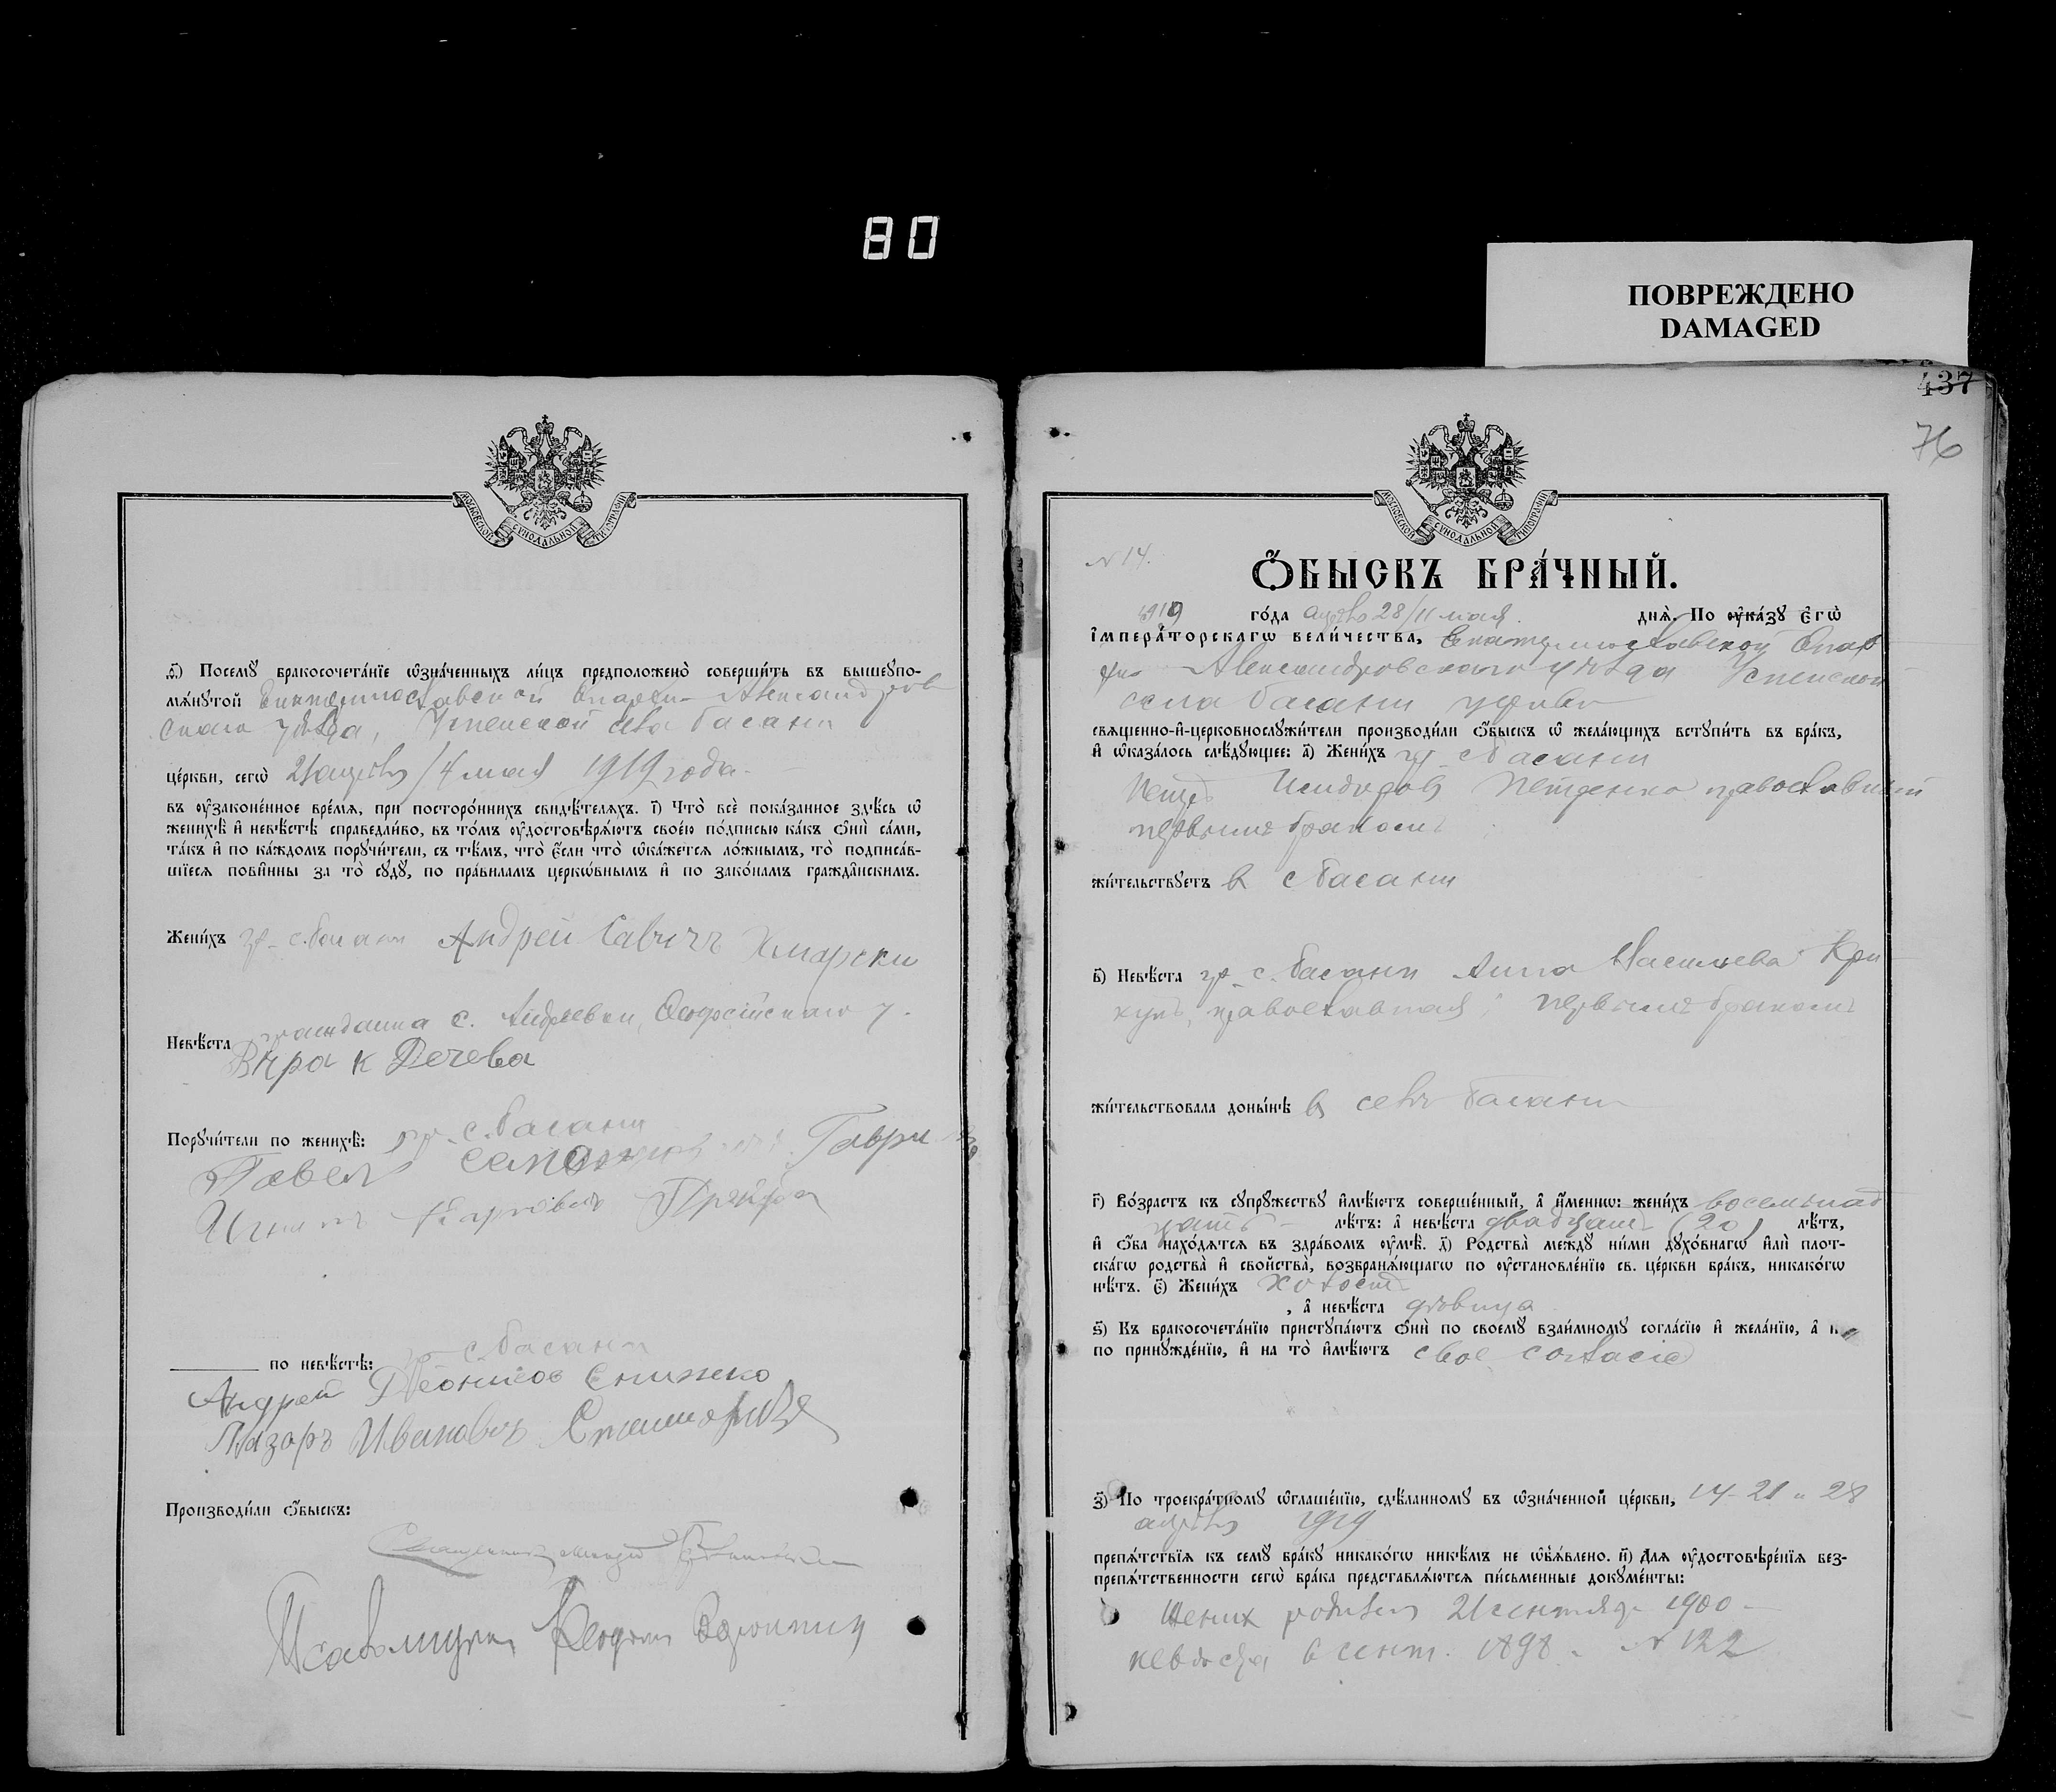 80
ПОВРЕЖДЕНО
DAMAGED
МОСКОВСКОЙ СѴНОДАЛЬНОЙ ТИПОГРАФІИ
Посемꙋ бракосочета́нїе ѡ҆зна́ченныхъ ли́цъ предположено̀ соверши́ть въ вышеꙋпо-
мѧ́нꙋтой Екатеринославской Епархіи Александров
скаго уѣзда, Успенской села Басани
це́ркви, сегѡ̀ 21 апрѣля / 4 мая 1919 года
въ ᲂу҆зако́ненное вре́мѧ, при посторо́ннихъ свидѣ́телѧхъ. і҃) Что̀ всѐ пока́занное здѣ́сь ѡ҆
женихѣ̀ и҆ невѣ́стѣ справедли́во, въ то́мъ ᲂу҆достовѣрѧ́ютъ свое́ю по́дписью ка́къ ѻ҆нѝ са́ми,
та́къ и҆ по ка́ждомъ порꙋчи́тели, съ тѣ́мъ, что̀ є҆́сли что̀ ѡ҆ка́жетсѧ ло́жнымъ, то̀ подписа́в-
шїесѧ пови́нны за то̀ сꙋдꙋ̀, по пра́виламъ церкѡ́внымъ и҆ по зако́намъ гражда̑нскимъ.
Жени́хъ гр. с. Басани Андрей Савичъ Хмарски
гражданка с. Андреевки, у.
Невѣ́ста Вѣра к Дечева
Порꙋчи́тели по женихѣ̀: гр. с. Басани
Павелъ Гаври
по невѣ́стѣ: с. Басани
Андрей Снижко
Лазаръ Ивановъ
Производи́ли ѻ҆́быскъ:
437
76
МОСКОВСКОЙ СѴНОДАЛЬНОЙ ТИПОГРАФІИ
N 14.
Ѻ҆́БЫСКЪ БРА́ЧНЫЙ.
1919 го́да апрѣля 28/11 мая днѧ̀. По ᲂу҆ка́зꙋ Є҆гѡ̀
І҆мпера́торскагѡ вели́чества, Екатеринославской Епар
хіи Александровскаго уѣзда Успенской
села Басани церкви
свѧще́нно-и҆-церковнослꙋжи́тели производи́ли ѻ҆́быскъ ѡ҆ жела́ющихъ встꙋпи́ть въ бра́къ,
и҆ ѡ҆каза́лось слѣ́дꙋющее: а҃) Жени́хъ гр. с. Басани
Петръ Исидоровъ Петренко православный
первымъ бракомъ
жи́тельствꙋетъ в с. Басани
в҃) Невѣ́ста гр. с. Басани Анна Васильева Кри
кунъ, православная, первымъ бракомъ
жи́тельствовала доны́нѣ в селѣ Басани
г҃) Во́зрастъ къ сꙋпрꙋ́жествꙋ и҆мѣ́ютъ соверше́нный, а҆ и҆́меннѡ: жени́хъ восемнад
цать лѣ́тъ: а҆ невѣ́ста двадцать (20) лѣ́тъ,
и҆ ѻ҆́ба нахо́дѧтсѧ въ здра́вомъ ᲂу҆мѣ̀. д҃) Родства̀ междꙋ̀ ни́ми дꙋхо́внагѡ и҆лѝ плот-
ска́гѡ родства̀ и҆ сво́йства, возбранѧ́ющагѡ по ᲂу҆становле́нїю св. це́ркви бра́къ, никако́гѡ
нѣ́тъ. є҃) Жени́хъ холостъ
, а҆ невѣ́ста дѣвица
ѕ҃) Къ бракосочета́нїю пристꙋпа́ютъ ѻ҆нѝ по своемꙋ̀ взаи́мномꙋ согла́сїю и҆ жела́нїю, а҆ н
по принꙋжде́нїю, и҆ на то̀ и҆мѣ́ютъ свое согласіе
з҃) По троекра́тномꙋ ѡ҆глаше́нїю, сдѣ́ланномꙋ въ ѡ҆зна́ченной це́ркви, 14-21 и 28
апрѣля 1919
препѧ́тствїѧ къ семꙋ̀ бра́кꙋ никако́гѡ никѣ́мъ не ѡ҆б̾ѧ́влено. и҃) Длѧ ᲂу҆достовѣре́нїѧ без-
препѧ́тственности сегѡ̀ бра́ка представлѧ́ютсѧ пи́сьменные докꙋме́нты:
Жених родился 21 сентября 1900
невѣста 6 сент. 1898 N 122